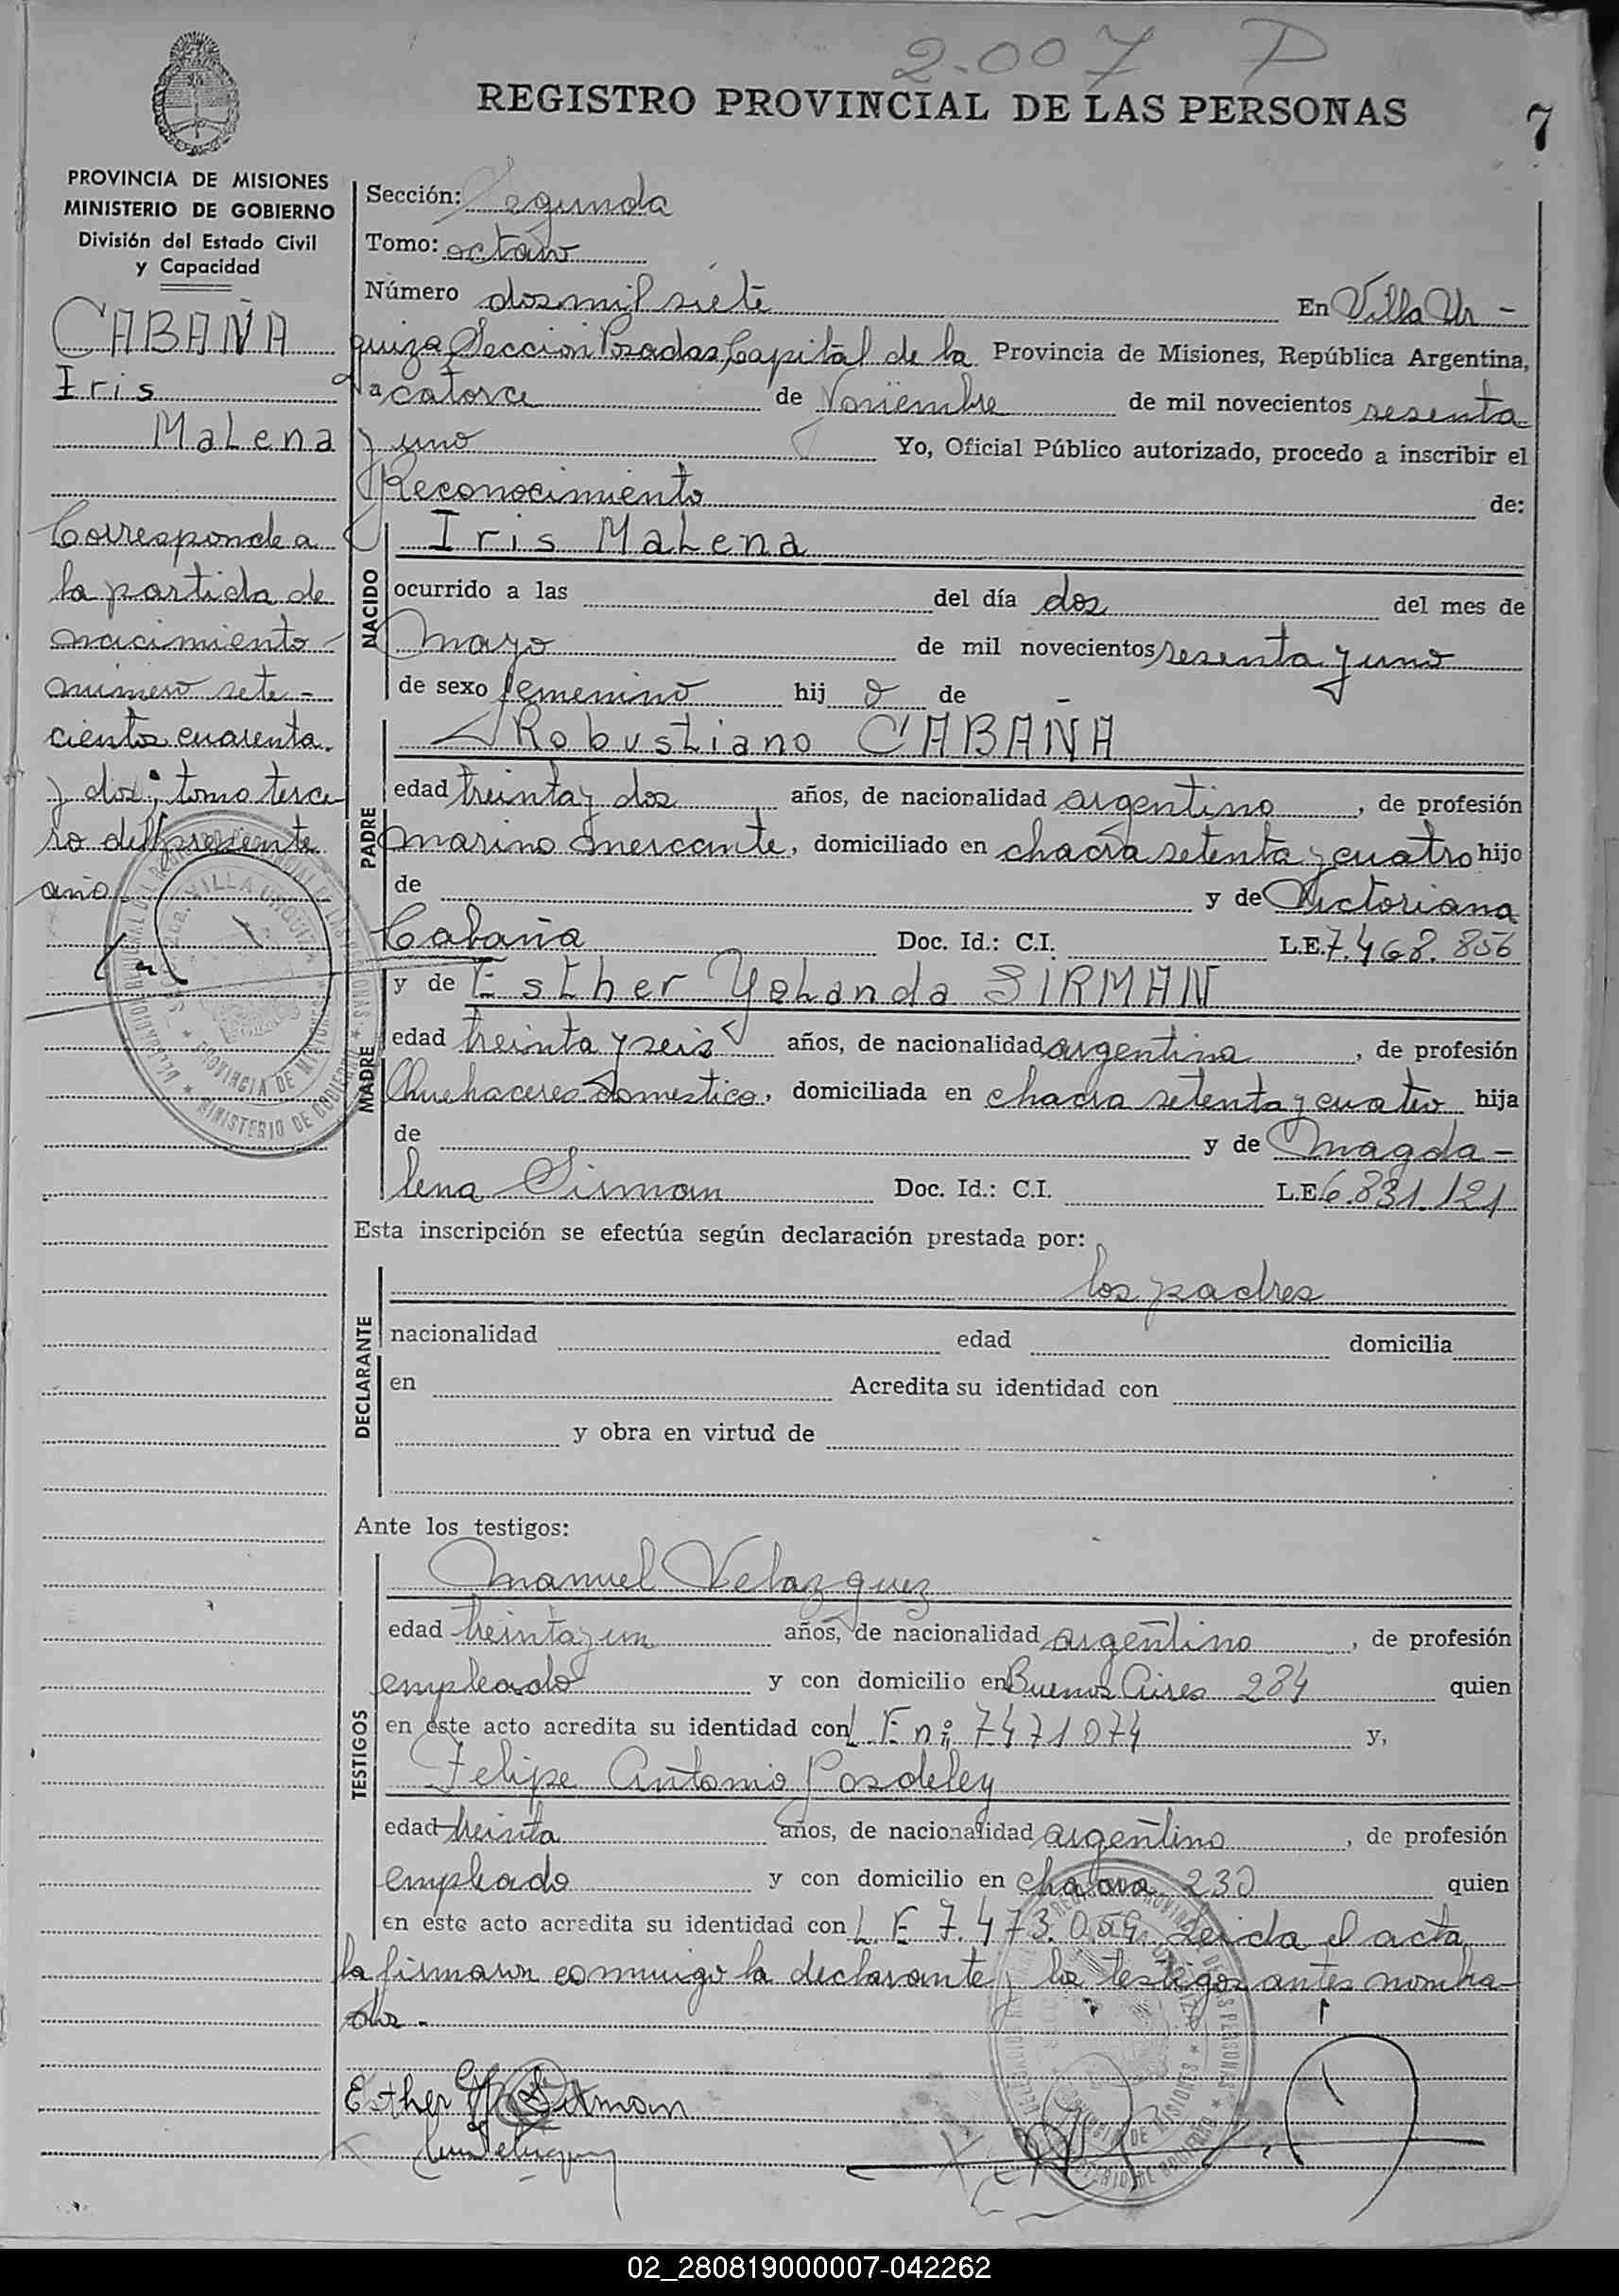 2.007 P
REGISTRO PROVINCIAL DE LAS PERSONAS
7
PROVINCIA DE MISIONES
MINISTERIO DE GOBIERNO
División del Estado Civil
y Capacidad
CABAÑA
Iris
Malena
Corresponde a
la partida de
nacimiento
número sete-
cientos cuarenta
y dos; tomo terce
ro del presente
año
Sección: Segunda
Tomo: octavo
Número dos mil siete En Villa Ur-
quiza Sección Posadas, Capital de la Provincia de Misiones, República Argentina,
a catorce de Noviembre de mil novecientos sesenta
y uno Yo, Oficial Público autorizado, procedo a inscribir el
Reconocimiento de:
NACIDO
Iris Malena
ocurrido a las del día dos del mes de
mayo de mil novecientos sesenta y uno
de sexo femenino hij a de
PADRE
Robustiano CABAÑA
edad treinta y dos años, de nacionalidad argentino, de profesión
marino mercante, domiciliado en chacra setenta y cuatro hijo
de y de Victoriana
Cabaña Doc. Id.: C.I. L.E. 7.468.856
MADRE
y de Esther Yolanda SIRMAN
edad treinta y seis años, de nacionalidad argentina, de profesión
Quehaceres domestico, domiciliada en chacra setenta y cuatro hija
de y de Magda-
lena Sirman Doc. Id.: C.I. L.E. 6.831.121
Esta inscripción se efectúa según declaración prestada por:
DECLARANTE
los padres
nacionalidad edad domicilia
en Acredita su identidad con
y obra en virtud de
Ante los testigos:
TESTIGOS
Manuel Velazquez
edad treinta y un años, de nacionalidad argentino, de profesión
empleado y con domicilio en Buenos Aires 284 quien
en este acto acredita su identidad con L.E. nº 7471074 y,
Felipe Antonio
edad treinta años, de nacionalidad argentino, de profesión
empleado y con domicilio en chacra 230 quien
en este acto acredita su identidad con L.E. 7.473. Leida el acta
la firmaron conmigo la declarante y los testigos antes nombra-
dos.-
Esther Sirman
02_280819000007-042262